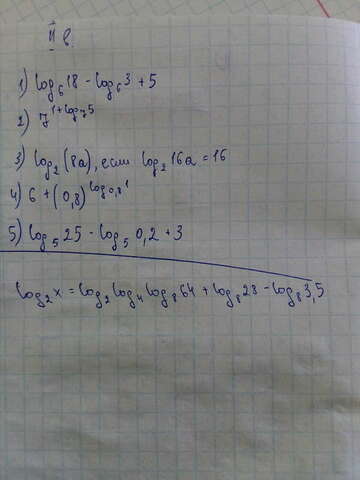 II в.
1) log₆18 - log₆3 + 5
2) 7^(1+log₇5)
3) log₂(8a), если log₂16a = 16
4) 6 + (0,8)^(log₀,₈1)
5) log₅25 - log₅0,2 + 3
log₂x = log₂log₄log₈64 + log₈28 - log₈3,5